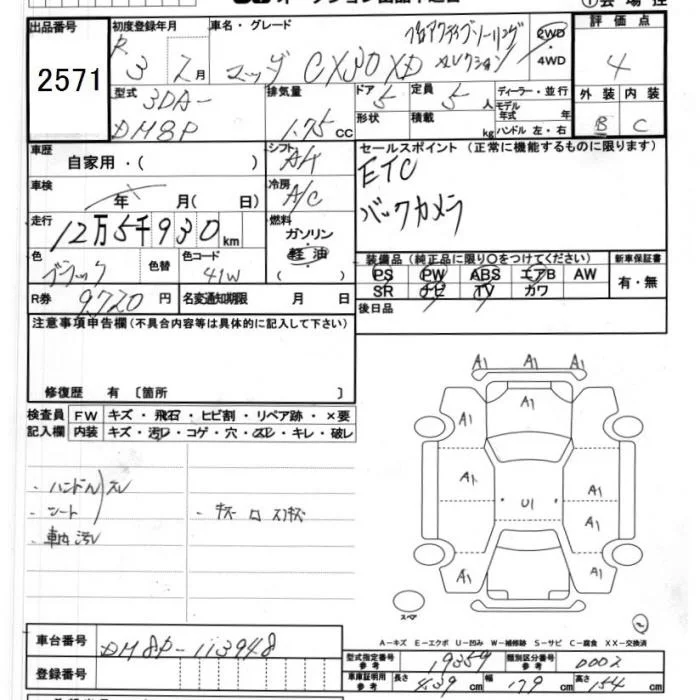 オークション出品申込書
出品番号 初度登録年月 車名・グレード 評価点
2571
R 3 2月 マツダ CX30 XD プロアクティブツーリング セレクション 2WD・4WD 4
型式 3DA-DM8P 排気量 1.75 CC
ドア 5 定員 5 人 ディーラー・並行 外装 内装
形状 積載 kg モデル年式 年式 ハンドル 左・右 B C
車歴 自家用・( ) シフト AT
セールスポイント (正常に機能するものに限ります)
ETC
バックカメラ
車検 年 月( 日) 冷房 A/C
走行 12万5千930km 燃料 ガソリン・軽油 ( )
色 ブラック 色替 色コード 41W
装備品 (純正品に限り○をつけてください) 新車保証書
PS PW ABS エアB AW 有・無
SR ナビ TV カワ
R券 9720 円 名変通知期限 月 日
後日品
注意事項申告欄(不具合内容等は具体的に記入して下さい)
修復歴 有 〔箇所 〕
検査員記入欄 FW キズ・飛石・ヒビ割・リペア跡・×要
内装 キズ・汚レ・コゲ・穴・スレ・キレ・破レ
・ハンドルスレ
・シート
・車内汚レ
・キズ ロ スリキズ
A1 A1 A1
A1
A1 A1
A1 U1 A1
A1
A1 A1
スペア
2
A-キズ E-エクボ U-凹み W-補修跡 S-サビ C-腐食 XX-交換済
車台番号 DM8P-113948
型式指定番号 参考 19359 類別区分番号 参考 0002
登録番号
車庫証明用 参考 長さ 439 cm 幅 179 cm 高さ 154 cm